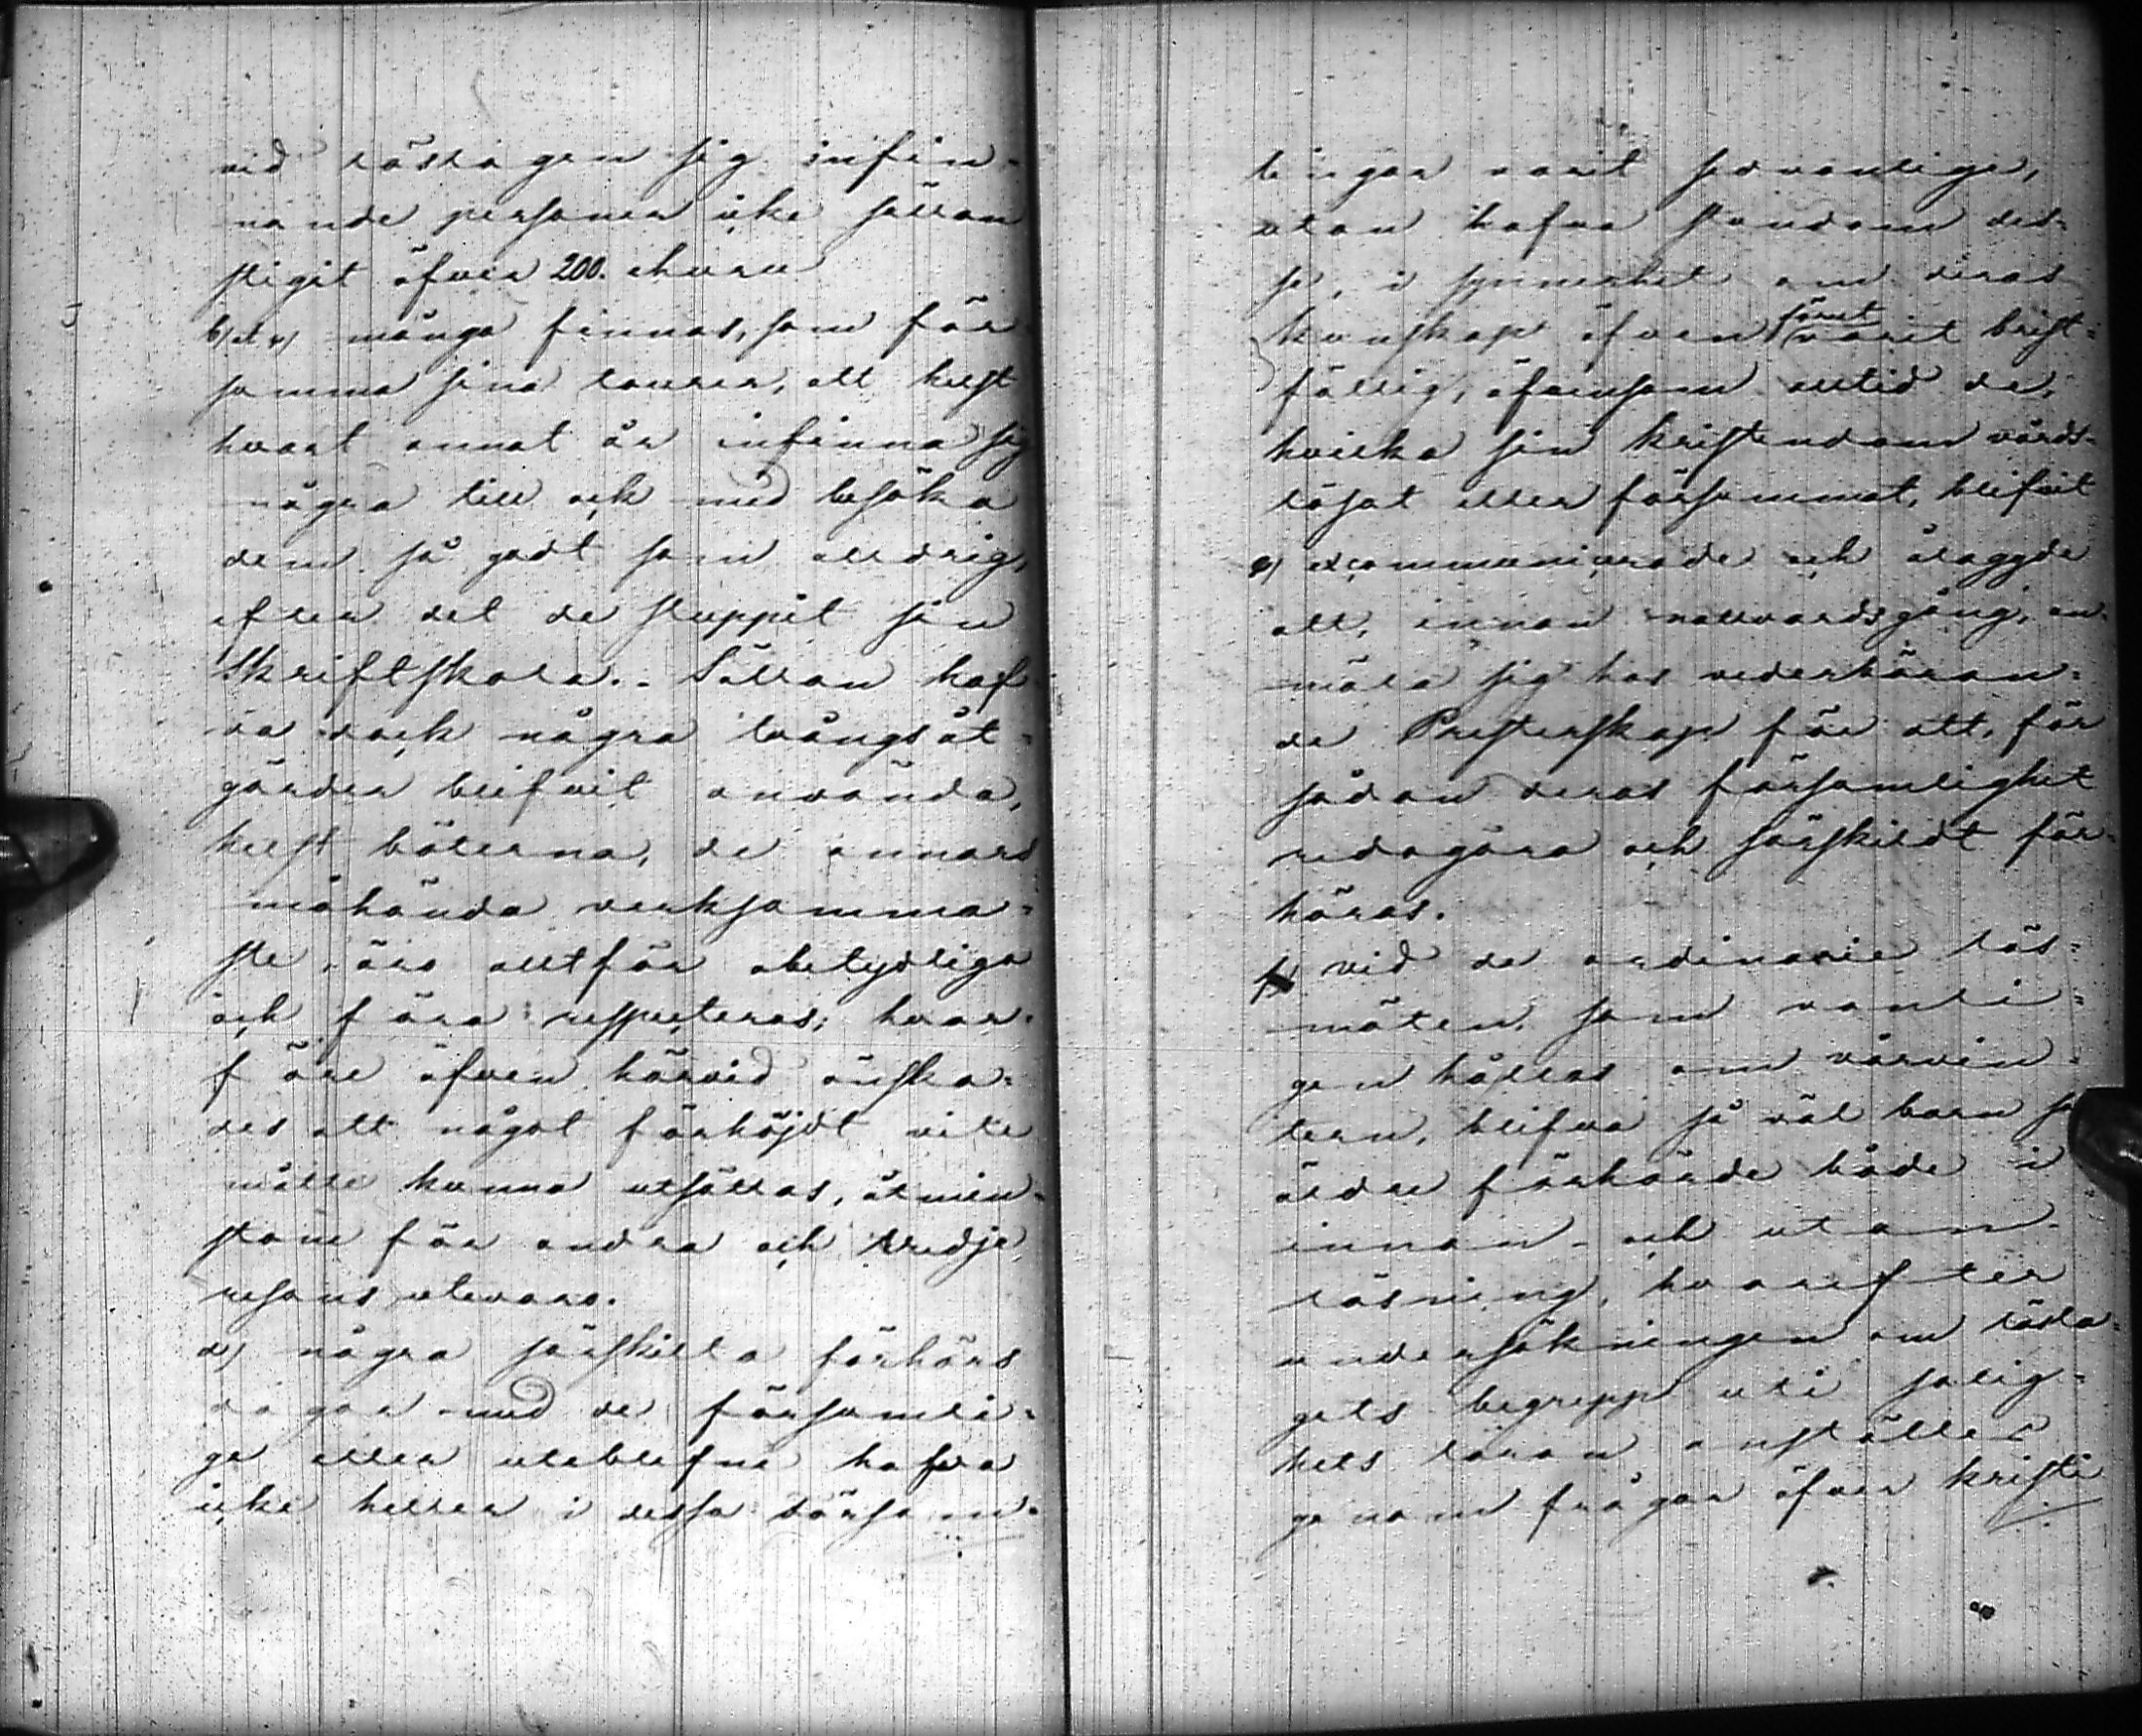 vid läslagen sig infin-
nande personer icke sällan
stigit öfver 200. ehuru
b) et c) många finnas, som för-
samma sina lourer, att helst
hvart annat år infinna sig
några till och med besöka
dem så godt som alldrig,
efter det de sluppit sin
Skriftskola. - Sällan haf-
va dock några tvångsåt-
gärder blifvit använda,
helst böterna, de annars
måhända verksamma-
ste, äro alltför obetydliga
och föra respecteras; hvar-
före äfven härvid önska-
des att något förhöjdt vite
måtte kunna utsättas, åtmin-
stone för andra och tredje
resans utevaro.
d) några särskilta förhörs
dagar med de försumli-
ge eller uteblefne hafva
icke heller i dessa församl-
lingar varit sedvanlige,
utan hafva stundom des-
se, i synnerhet om deras
kunskap äfven förut varit brist-
fällig, äfvensom alltid de,
hvilka sin kristendom vårds-
lösat eller försummat, blifvit
e) excommunicerade och ålaggde
att, innan nattvardsgång, an-
mäla sig hos vederböran-
de Presterskap för att, för
sådan deras försumlighet
redogöra och särskildt för-
höras.
f) vid de ordinarie läs-
möten, som vanli-
gen hållas om vårvin-
tern, blifva så väl barn so
äldre förhörde både i
innan- och utan-
läsning, hvarefter
undersökningen om läsla-
gets begrepp uti salig-
hets läran anställes
genom frågor öfver kristi